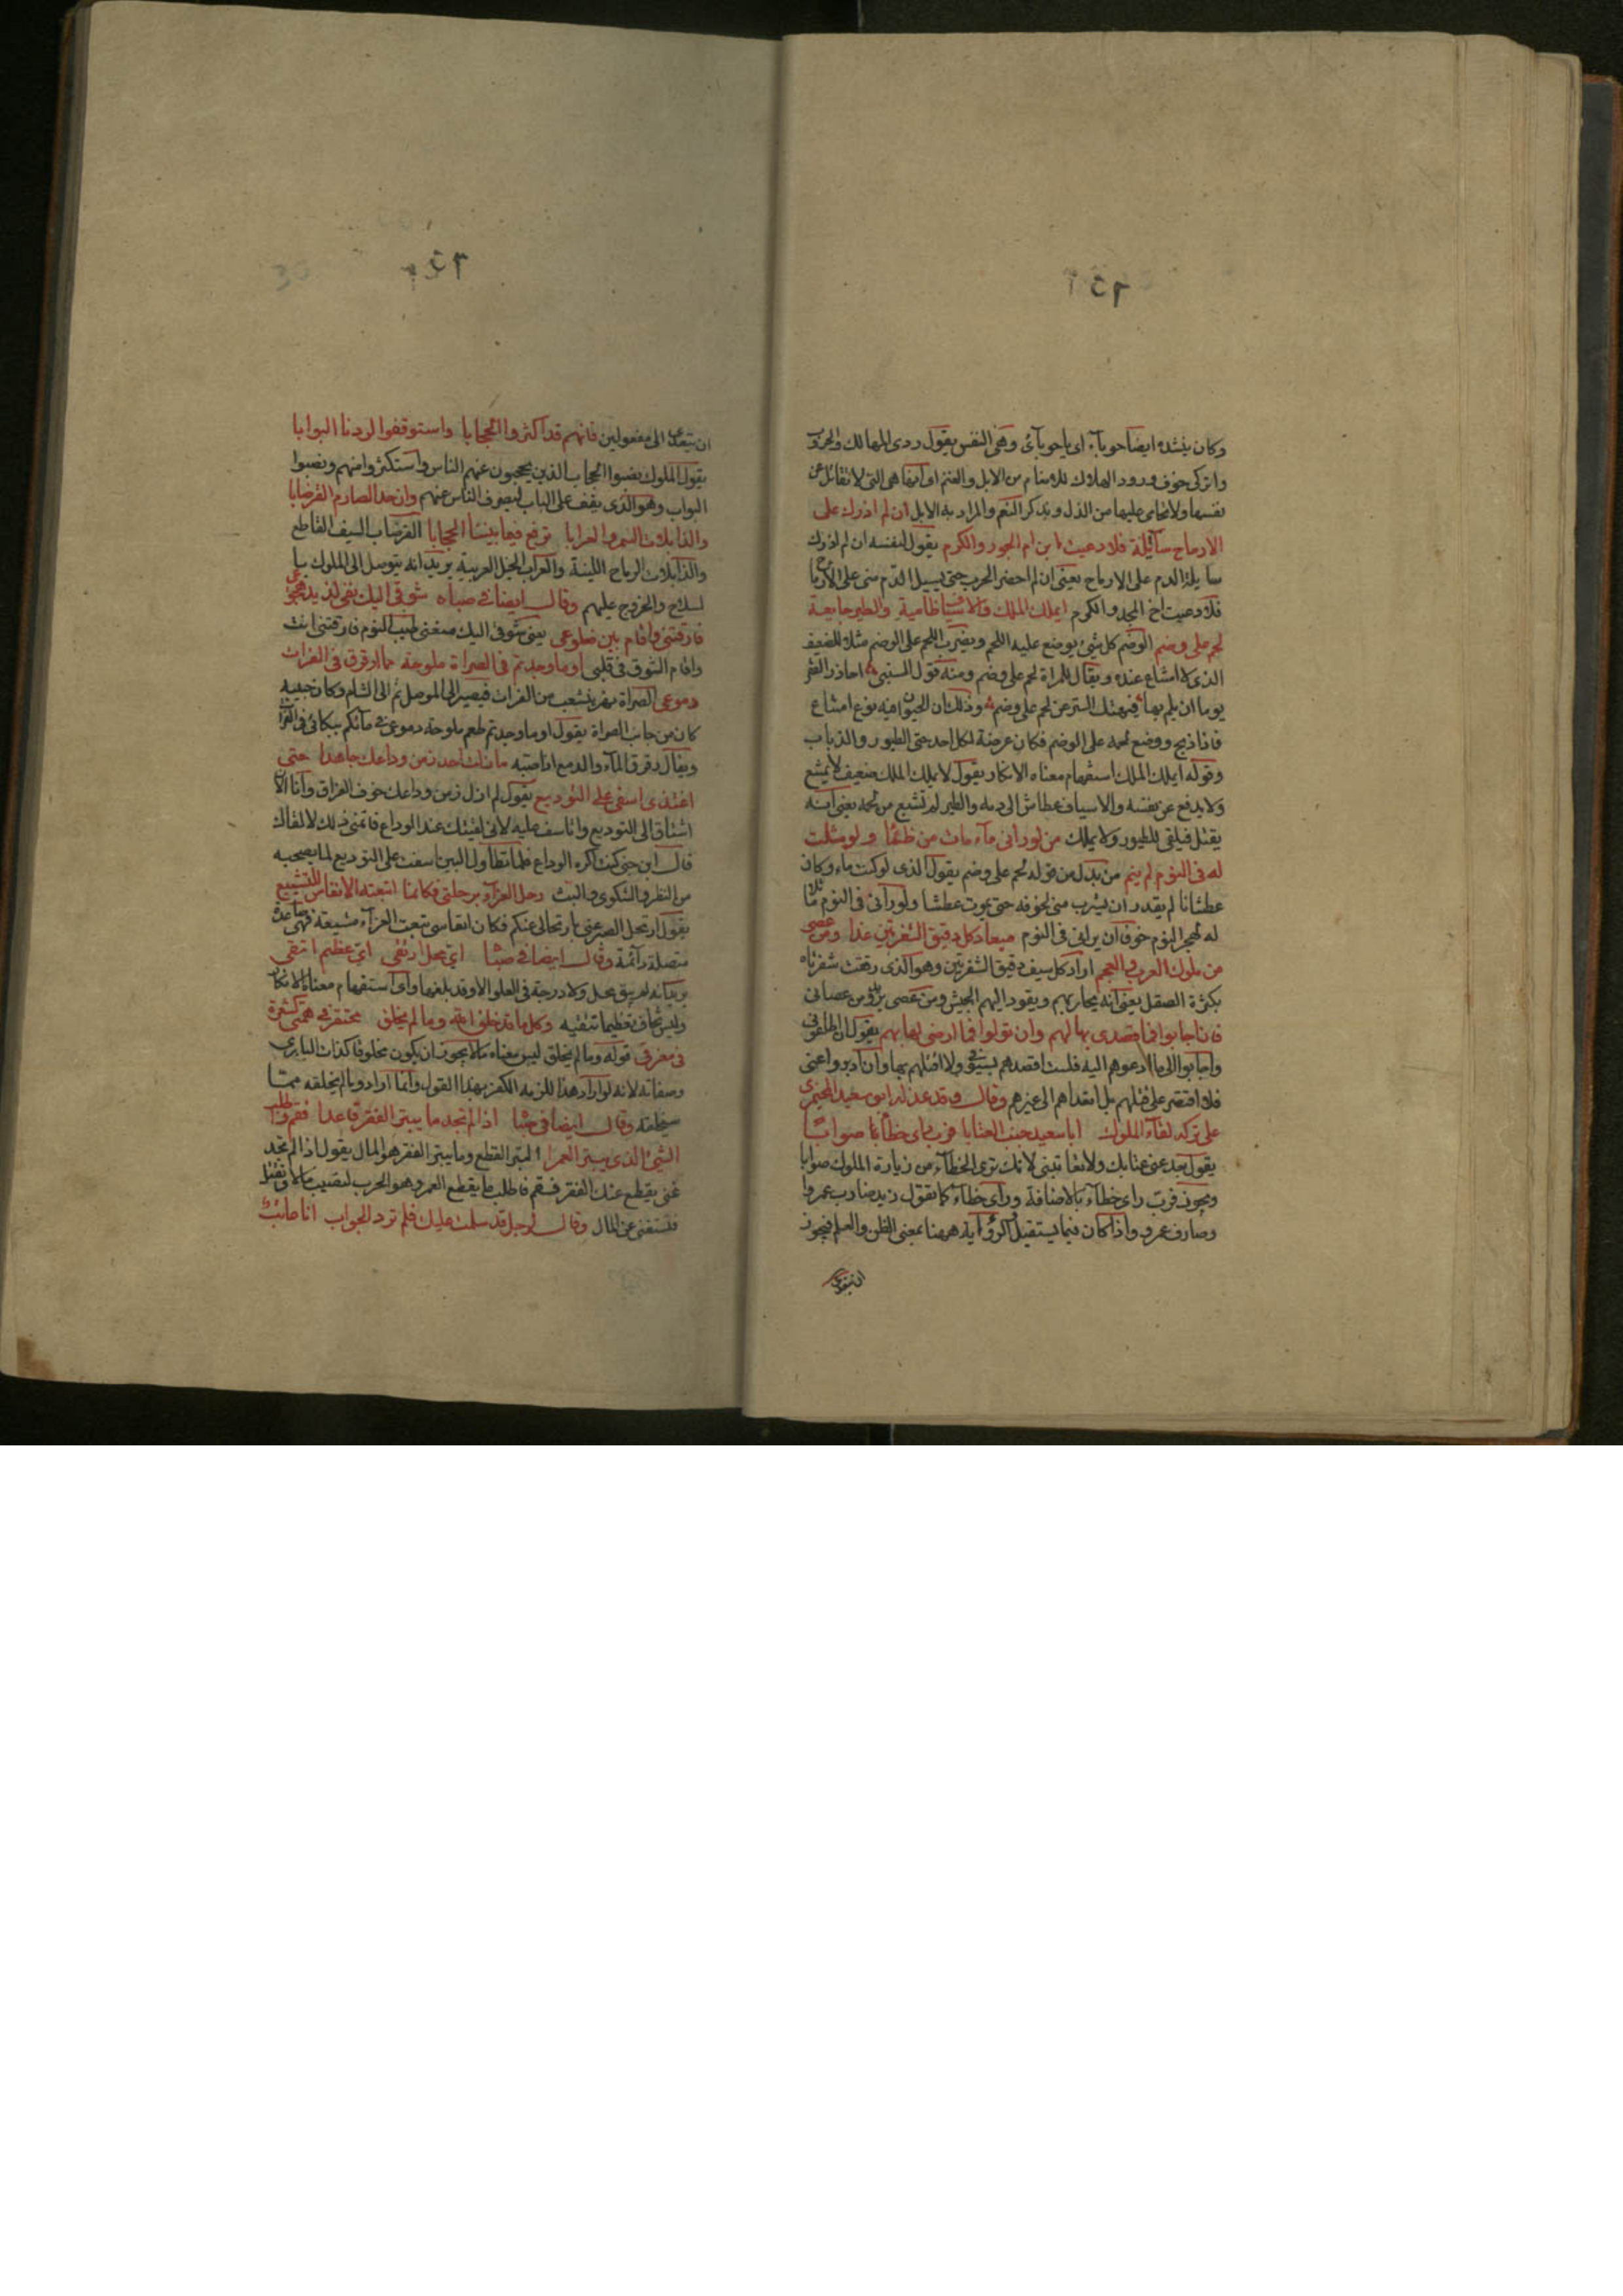 وكان ينشده ايضا حوباء اى ياحوباى وهى النفس يقول ردى المهالك والحروب
واتركى خوف ورود الهلاك للانعام من الابل والغنم اى انها هى التى لا تقاتل عن
نفسها ولا تحامى عليها من الذل ويذكر النعم والمراد به الابل ان لم اذرك على
الارماح سائلة فلا دعيت ابن ام المجد والكرم يقول لنفسه ان لم اذرك
سايلة الدم على الارماح يعنى ان لم احضر الحرب حتى يسيل الدم منى على الارماح
فلا دعيت اخ المجد والكرم ايملك الملك والاسياف ظامية والطير جايعة
لحم على وضم الوضم كل شئ يوضع عليه اللحم ويضرب اللحم على الوضم مثلا للضعيف
الذى لا امتناع عنده ويقال للمراة لحم على وضم ومنه قول احاذر الفقر
يوما ان يلم بها فيهتك الستر عن لحم على وضم وذلك ان الحيوان فيه نوع امتناع
فاذا ذبح ووضع لحمه على الوضم فكان عرضة لكل احد حتى الطيور والذباب
وقوله ايملك الملك استفهام معناه الانكار يقول لا يملك الملك ضعيف لا يمتنع
ولا يدفع عن نفسه والاسياف عطاش الى دمه والطير لم تشبع من لحمه يعنى انه
يقتل فيلقى للطيور ولا يملك من لو رانى ماء مات من ظمأ ولو مثلت
له فى النوم لم ينم من بدل من قوله لحم على وضم يقول الذى لو كنت ماء وكان
عطشانا لم يقدر ان يشرب منى لخوفه حتى يموت عطشا ولو رآنى فى النوم
له لهجر النوم خوف ان يرانى فى النوم ميعاد كل رقيق الشفرتين غدا ومن عصى
من ملوك العرب والعجم اراد كل سيف رقيق الشفرتين وهو الذى رققت شفرتاه
بكثرة الصقل يعنى انه يحاربهم ويقود اليهم الجيش ومن عصى يريد ومن عصانى
فان اجابوا فما قصدى بها لهم وان تولوا فما ارضى لها بهم يقول ان اطاعونى
واجابوا الى ما ادعوهم اليه فلست اقصدهم بسيفى ولا اقتلهم بها وان ادبروا عنى
فلا اقتصر على قتلهم بل اتعداهم الى غيرهم وقال وقد عذله ابو سعيد المخيمرى
على تركه لقاء الملوك ابا سعيد جنب العتابا فرب راى خطأ صوابا
يقول بعد عنى عتابك ولا تعاتبنى لانك ترى الخطاء من زيارة الملوك صوابا
ويجوز فرب راى خطاء بالاضافة وراى خطاء كما تقول زيد ضارب عمروا
وضارب عمرو واذا كان فيما يستقبل الروءاية ههنا بمعنى الظن والعلم فيجوز
ان يتعدى الى مفعولين فانهم قد اكثروا الحجابا واستوقفوا لردنا البوابا
يقول الملوك نصبوا الحجاب الذين يحجبون عنهم الناس واستكثروا منهم ونصبوا
البواب وهو الذى يقف على الباب ليصرف الناس عنهم وان حد الصارم القرضابا
والذابلات السمر والعرابا ترفع فيما بيننا الحجابا القرضاب السيف القاطع
والذابلات الرماح اللينة والعراب الخيل العربية يريد انه يتوسل الى الملوك با
لسلاح والخروج عليهم وقال ايضا فى صباه شوقى اليك نفى لذيذ هجوعى
فارقتنى واقام بين ضلوعى يعنى شوقى اليك منعنى طيب النوم فارقتنى انت
واقام الشوق فى قلبى اوما وجدتم فى الصراة ملوحة مما ارقرق فى الفرات
دموعى الصراة نهر يتشعب من الفرات فيصير الى الموصل ثم الى الشام وكان حبيبه
كان من جانب الصراة يقول اوما وجدتم طعم ملوحة دموعى فى مائكم ببكائى فى الفرات
ويقال رقرق الماء والدمع اذا صبه ما زلت احذر من وداعك جاهدا حتى
اغتذى اسفى على التوديع يقول لم ازل زمن وداعك خوف الفراق وانا الان
اشتاق الى التوديع واتاسف عليه لانى لقيتك عند الوداع فاتمنى ذلك لالقاك
قال ابن جنى كنت اكره الوداع فلما تطاول البين اسفت على التوديع لما يصحبه
من النظر والشكوى والبث رحل العزاء برحلتى فكانما اتبعته الانفاس للتشييع
يقول ارتحل الصبر عنى بارتحالى عنكم فكان انفاسى تبعت العزاء مشيعة فهى
متصلة دائمة وقال ايضا فى صباه اى محل ارتقى اى عظيم اتقى
يريد انه لم يبق محل ولا درجة فى العلو الا وقد بلغها واى استفهام معناه الانكار
وليس يخاف عظيما تتقيه وكل ما قد خلق الله وما لم يخلق محتقر فى همتى كشعرة
فى مفرقى قوله وما لم يخلق ليس معناه مالا يجوز ان يكون مخلوقا كذات البارى
وصفاته لانه لو اراد هذا للزمه الكفر بهذا القول وانما اراد وما لم يخلقه مما
سيخلقه وقال ايضا فى صباه اذا لم تجد ما يبتر الفقر قاعدا فقم واطلب
الشئ الذى يبتر العمرا البتر القطع وما يبتر الفقر هو المال يقول اذا لم تجد
غنى يقطع عنك الفقر فقم فاطلب ما يقطع العمر وهو الحرب لتصيب مالا او تقتل
فتستغنى عن المال وقال لرجل قد سلمت عليك فلم ترد الجواب انا عاتب